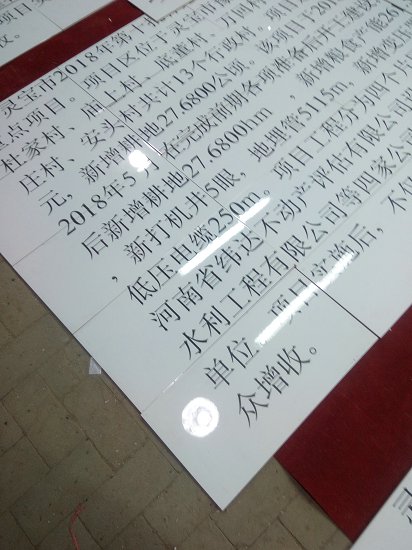 灵宝市2018年第十
重点项目。项目区位于灵宝市
杜家村、庙上村、底董村、万
庄村、安头村共计13个行政村。该项目于201
元，新增耕地27.6800公顷。
2018年5月在完成前期各项准备后开工建设
后新增耕地27.6800hm，新增粮食产能2
，新打机井5眼，地埋管5115m，新增变压
低压电缆250m。项目工程分为四个片
河南省纬达不动产评估有限公司
水利工程有限公司等四家公司
单位。项目实施后，不
众增收。